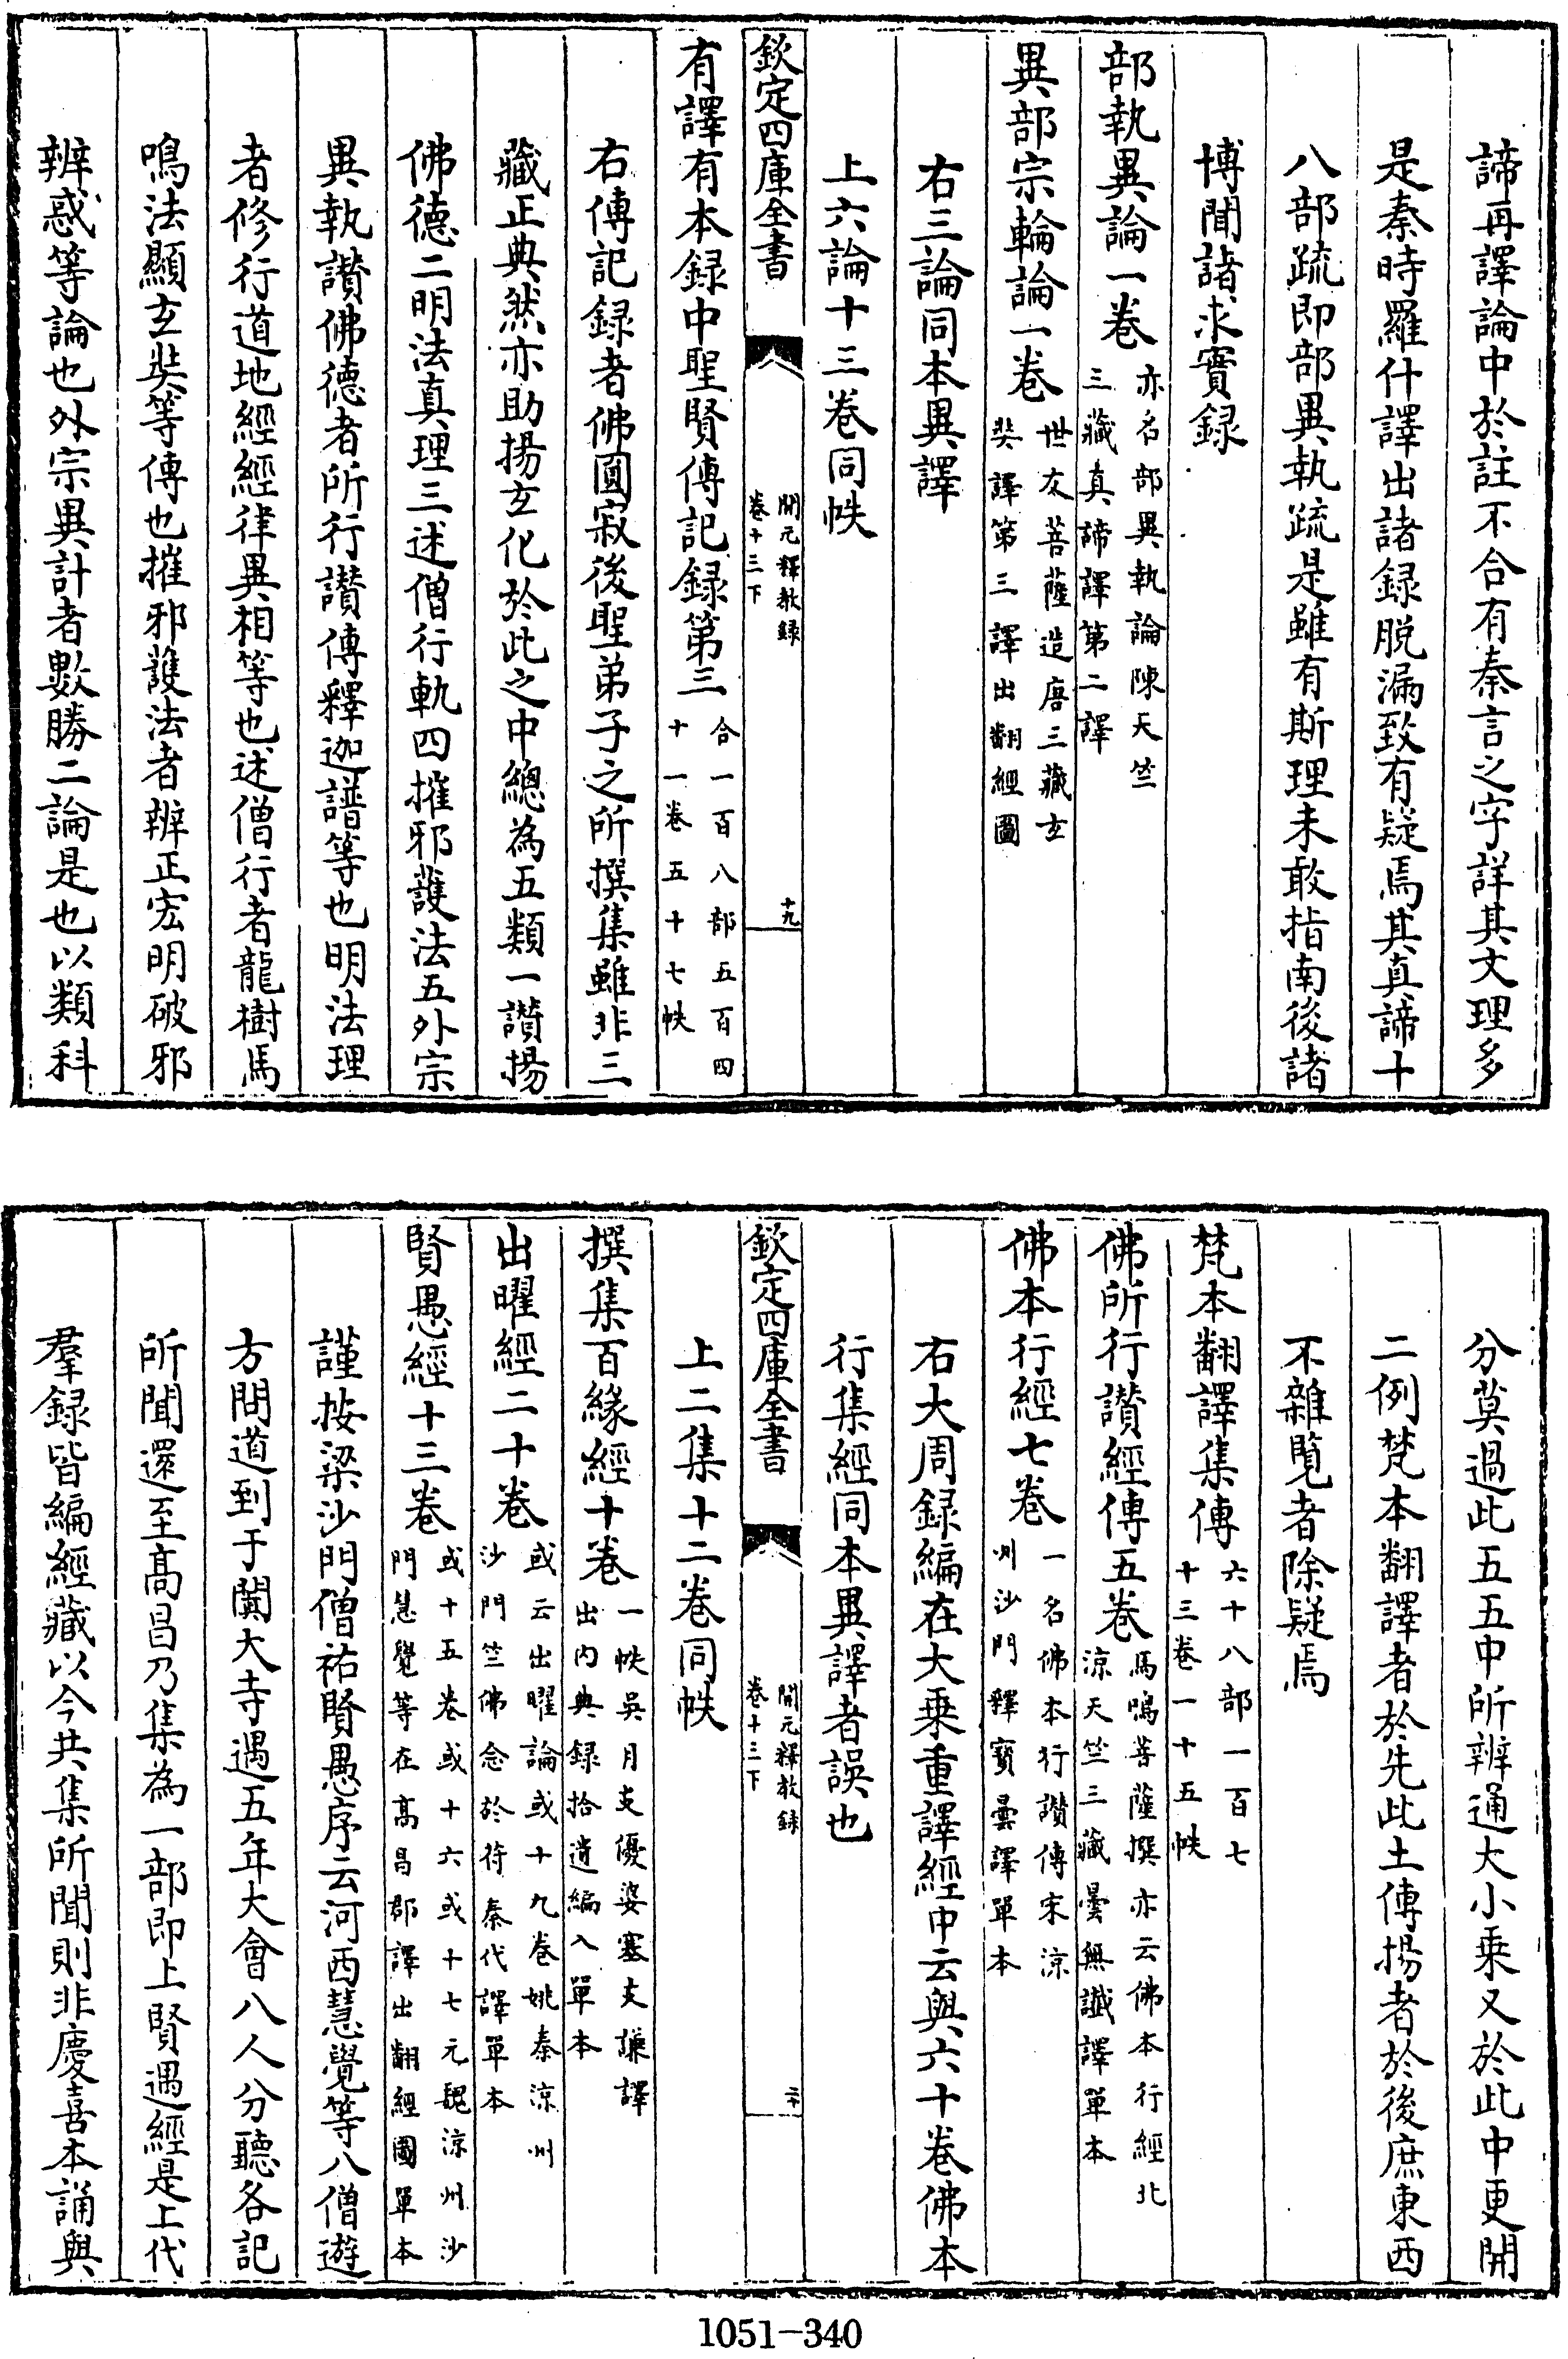 諦再譯論中於註不合有秦言之字詳其文理多
是秦時羅什譯出諸録脱漏致有疑焉其真諦十
八部疏即部異執疏是雖有斯理未敢指南後諸
博聞諸求實録
部執異論一卷亦名部異執論陳天竺
三藏真諦譯第二譯
異部宗輪論一卷世友菩薩造唐三藏玄
奘譯第三譯出翻經圖
右三論同本異譯
上六論十三卷同帙
欽定四庫全書
開元釋教録
卷十三下
十九
有譯有本録中聖賢傳記録第三合一百八部五百四
十一卷五十七帙
右傳記録者佛圓寂後聖弟子之所撰集雖非三
藏正典然亦助揚玄化於此之中總為五類一讃揚
佛德二明法真理三述僧行軌四摧邪護法五外宗
異執讃佛德者所行讃傳釋迦譜等也明法理
者修行道地經經律異相等也述僧行者龍樹馬
鳴法顯玄奘等傳也摧邪護法者辨正宏明破邪
辨惑等論也外宗異計者數勝二論是也以類科
分莫過此五五中所辨通大小乘又於此中更開
二例梵本翻譯者於先此土傳揚者於後庶東西
不雜覽者除疑焉
梵本翻譯集傳六十八部一百七
十三卷一十五帙
佛所行讃經傳五卷馬鳴菩薩撰亦云佛本行經北
涼天竺三藏曇無讖譯單本
佛本行經七卷一名佛本行讃傳宋涼
州沙門釋寳曇譯單本
右大周録編在大乘重譯經中云與六十卷佛本
行集經同本異譯者誤也
欽定四庫全書
開元釋教録
卷十三下
二十
上二集十二卷同帙
撰集百緣經十卷一帙吳月支優婆塞支謙譯
出内典録拾遺編入單本
出曜經二十卷或云出曜論或十九卷姚秦涼州
沙門竺佛念於苻秦代譯單本
賢愚經十三卷或十五卷或十六或十七元魏涼州沙
門慧覺等在髙昌郡譯出翻經圖單本
謹按梁沙門僧祐賢愚序云河西慧覺等八僧遊
方問道到于闐大寺遇五年大會八人分聽各記
所聞還至髙昌乃集為一部即上賢遇經是上代
羣録皆編經藏以今共集所聞則非慶喜本誦與
1051-340